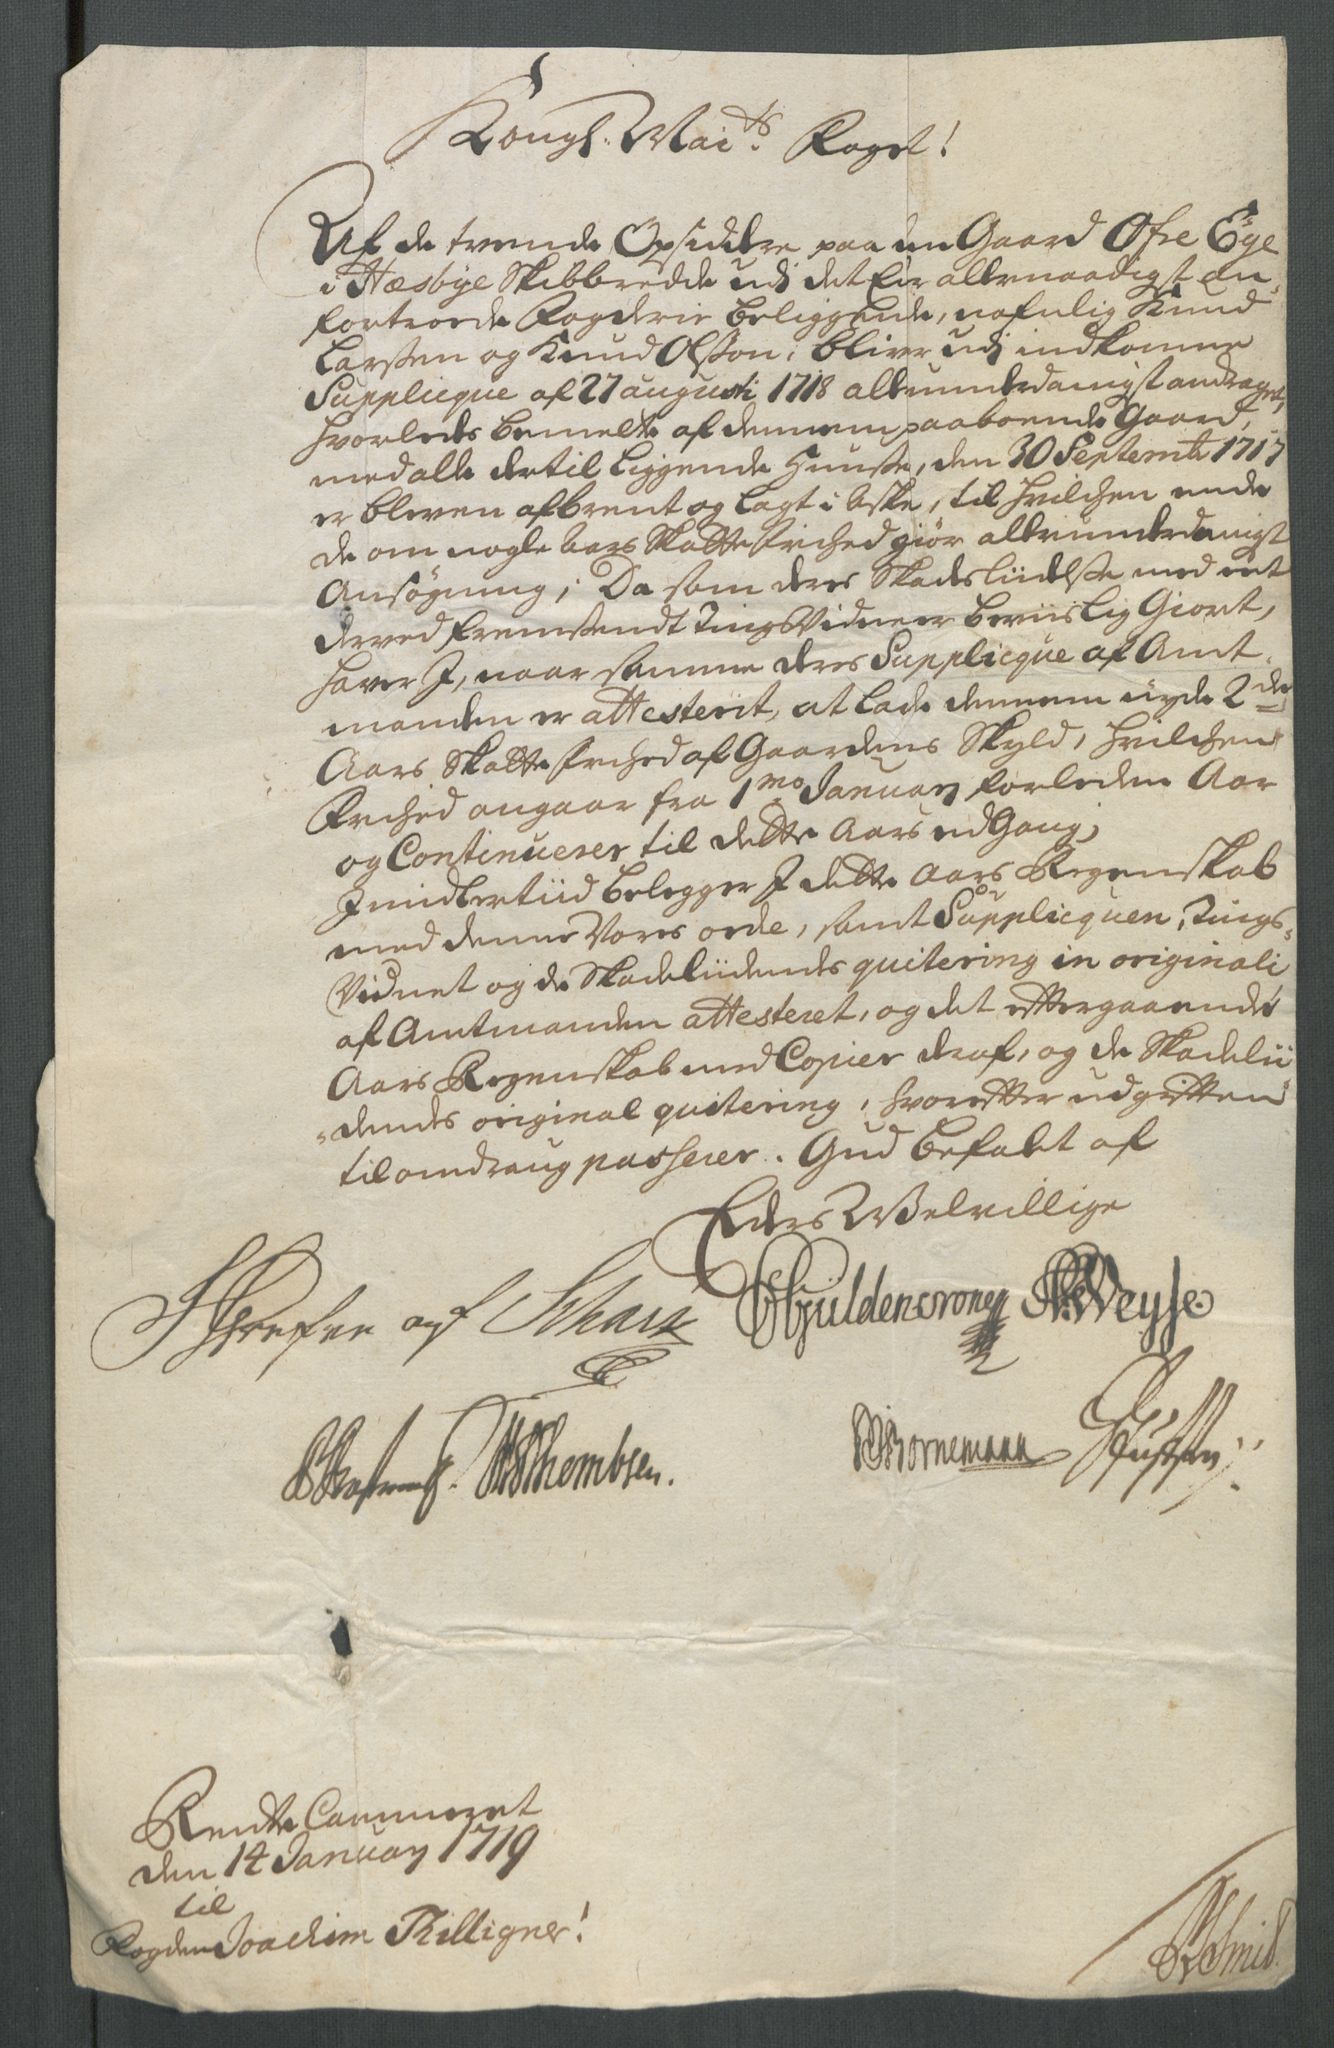 Kongl. Maits. Foget!
Af de tvende Opsiddere paa en Gaard Øfre Eÿe
i Hæsbÿe Skibbredde udj det Eir allernaadigst an-
fortroede Fogderie beliggende, nafnlig Knud
Larssen og Knud Olsson, bliver udj indkomne
Supplicque af 27 augusti 1718 allerunderdanigst andraget,
hvorledes bemelte af dennem paaboende Gaard,
med alle dertil liggende Huusse, den 30 Septembr 1717
er bleven afbrent og lagt i Aske, til hvilchen ende
de om nogle aars Skatte frihed giør allerunderdanigst
Ansögning; Da som deres Skades liidelsse med eet
derved fremssendt TingsVidne er beviislig Giort,
haver I, naar samme deres Supplicque af Amt-
manden er attesterit, at lade dennem nÿde 2de
Aars Skatte frihed af Gaardens Skyld, hvilchen
Frihed angaar fra 1mo Januarij forleden Aar
og Continuerer til dette Aars udGang;
Imidlertiid belegger I dette Aars Regenskab
med denne Vores orde, samt Supplicquen, Tings-
Vidnet og de Skadeliidendes quitering in originali
af Amtmanden attesteret, og det effter gaaende
Aars Regenskab med Copier deraf, og de Skadelii-
-dendes original quitering, hvoreffter udgifften
til omdraug passerer. Gud befalet af
Eders Velvillige
af
CGyldencrone Weyse.
Thombsen. Bornemann
Rendte Cammeret
den 14 Januarj 1719
til
Fogden Joachim Tilligner!
Smid